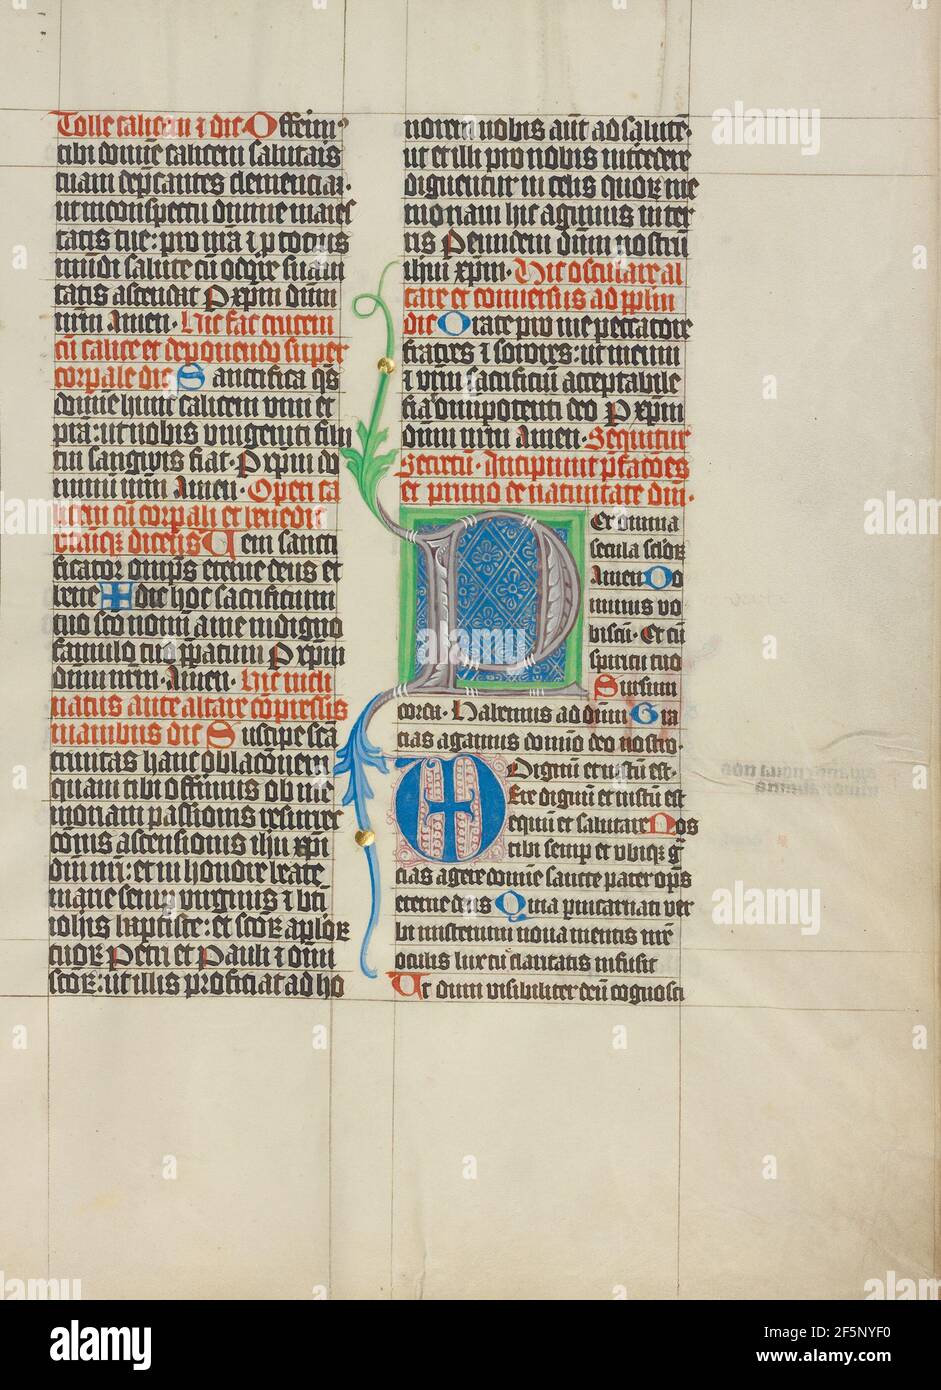 Tolle calicem ⁊ dic Offerim⁹
tibi domie calicem salutaris
tuam dep̄cantes clemenciaꝫ·
ut in conspectu diuine maies
tatis tue: pro nr̄a ⁊ p totius
mūdi salute cū odore suaui
tatis ascendat P xp̄m dn̄m
nr̄m Amen · Hic fac crucem
cū calice et deponendo super
corpale dic Sanctifica q̄s
domie hunc calicem vini et
pr̄a: ut nobis vnigeniti filii
tui sanguis fiat · P xp̄m do
minū nr̄m Amen · Operi ca
licem cū corpali et benedic
utrūqꝫ dicens Veni sancti
ficator omīps eterne deus et
bene ✠ dic hoc sacrificium
tuo sc̄o nomī a me indigno
famulo tuo p̄paratum P xp̄m
dn̄m nr̄m · Amen · Hic incli
natus ante altare cōpressis
manibus dic Suscipe sc̄a
trinitas hanc oblacōnem
quam tibi offerimus ob me
moriam passionis resurrec
cōnis ascensionis ihū xp̄i
dn̄i nr̄i: et in honore beate
marie semp virginis ⁊ bt̄i
iohīs baptiste: et sc̄oꝝ ap̄loꝝ
tuoꝝ Petri et Pauli ⁊ om̄i
sc̄oꝝ: ut illis proficiat ad ho
norem nobis aūt ad salutē·
ut et illi pro nobis int̄cedere
dignentur in celis quoꝝ me
moriam hic agimus in ter
ris P eundem dn̄m nostrū
ihm̄ xp̄m · Hic osculare al
tare et conuersus ad pp̄lm
dic Orate pro me peccatore
fratres ⁊ sorores: ut meum
⁊ vr̄m sacrificiū acceptabile
fiat omnipotenti deo P xp̄m
dn̄m nr̄m Amen · Sequitur
Secretū · Incipiunt p̄facōes
et primo de natiuitate dn̄i·
Per omnia
secula sc̄loꝝ
Amen Do
minus vo
biscū · Et cū
spiritu tuo
Sursum
corda · Habemus ad dn̄m Gra
cias agamus domīo deo nostro·
Dignū et iustū est·
Vere dignū et iustū est
equū et salutare Nos
tibi semp et vbiqꝫ gr̄
cias agere domīe sancte pater op̄s
eterne deus Quia p incarnati ver
bi misterium noua mentis nr̄e
oculis lux tu claritatis infulsit
Ut dum visibiliter deū cognosci
alamy
Image ID: 2F5NYF0
www.alamy.com